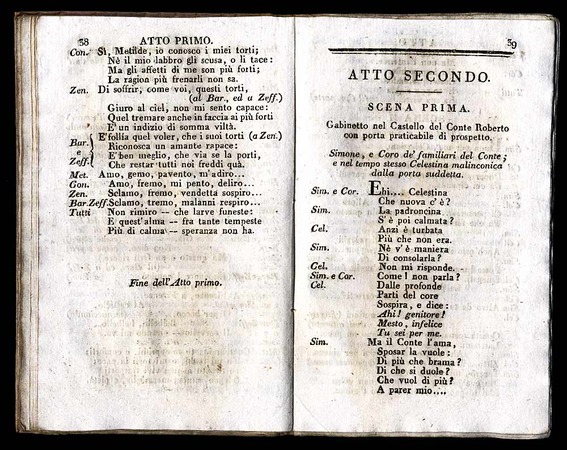 38
ATTO PRIMO.
Con. Sì, Metilde, io conosco i miei torti;
Nè il mio labbro gli scusa, o li tace:
Ma gli affetti di me son più forti;
La ragion più frenarli non sa.
Zen. Di soffrir, come voi, questi torti,
(al Bar., ed a Zeff.)
Giuro al ciel, non mi sento capace:
Quel tremare anche in faccia ai più forti
E' un indizio di somma viltà.
Bar. e Zeff. E' follia quel voler, che i suoi torti (a Zen.)
Riconosca un amante rapace:
E' ben meglio, che via se la porti,
Che restar tutti noi freddi quà.
Met. Amo, gemo, pavento, m'adiro...
Con. Amo, fremo, mi pento, deliro...
Zen. Sclamo, fremo, vendetta sospiro...
Bar. Zeff. Sclamo, tremo, malanni respiro...
Tutti Non rimiro -- che larve funeste:
E quest'alma -- fra tante tempeste
Più di calma -- speranza non ha.
Fine dell'Atto primo.
39
ATTO SECONDO.
SCENA PRIMA.
Gabinetto nel Castello del Conte Roberto
con porta praticabile di prospetto.
Simone, e Coro de' familiari del Conte;
e nel tempo stesso Celestina malinconica
dalla porta suddetta.
Sim. e Cor. Ehi.... Celestina
Che nuova c'è?
Sim. La padroncina
S'è poi calmata?
Cel. Anzi è turbata
Più che non era.
Sim. Nè v'è maniera
Di consolarla?
Cel. Non mi risponde.
Sim. e Cor. Come! non parla?
Cel. Dalle profonde
Parti del core
Sospira, e dice:
Ahi! genitore!
Mesto, infelice
Tu sei per me.
Sim. Ma il Conte l'ama,
Sposar la vuole:
Di più che brama?
Di che si duole?
Che vuol di più?
A parer mio....